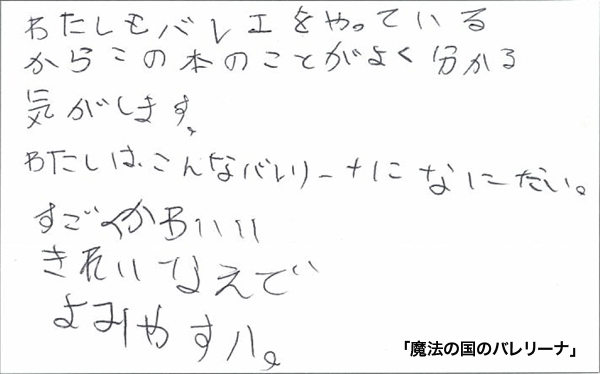 わたしもバレエをやっている
からこの本のことがよく分かる
気がします。
わたしは、こんなバレリーナになにたい。
すごくかわいい
きれいなえで
よみやすい。
「魔法の国のバレリーナ」